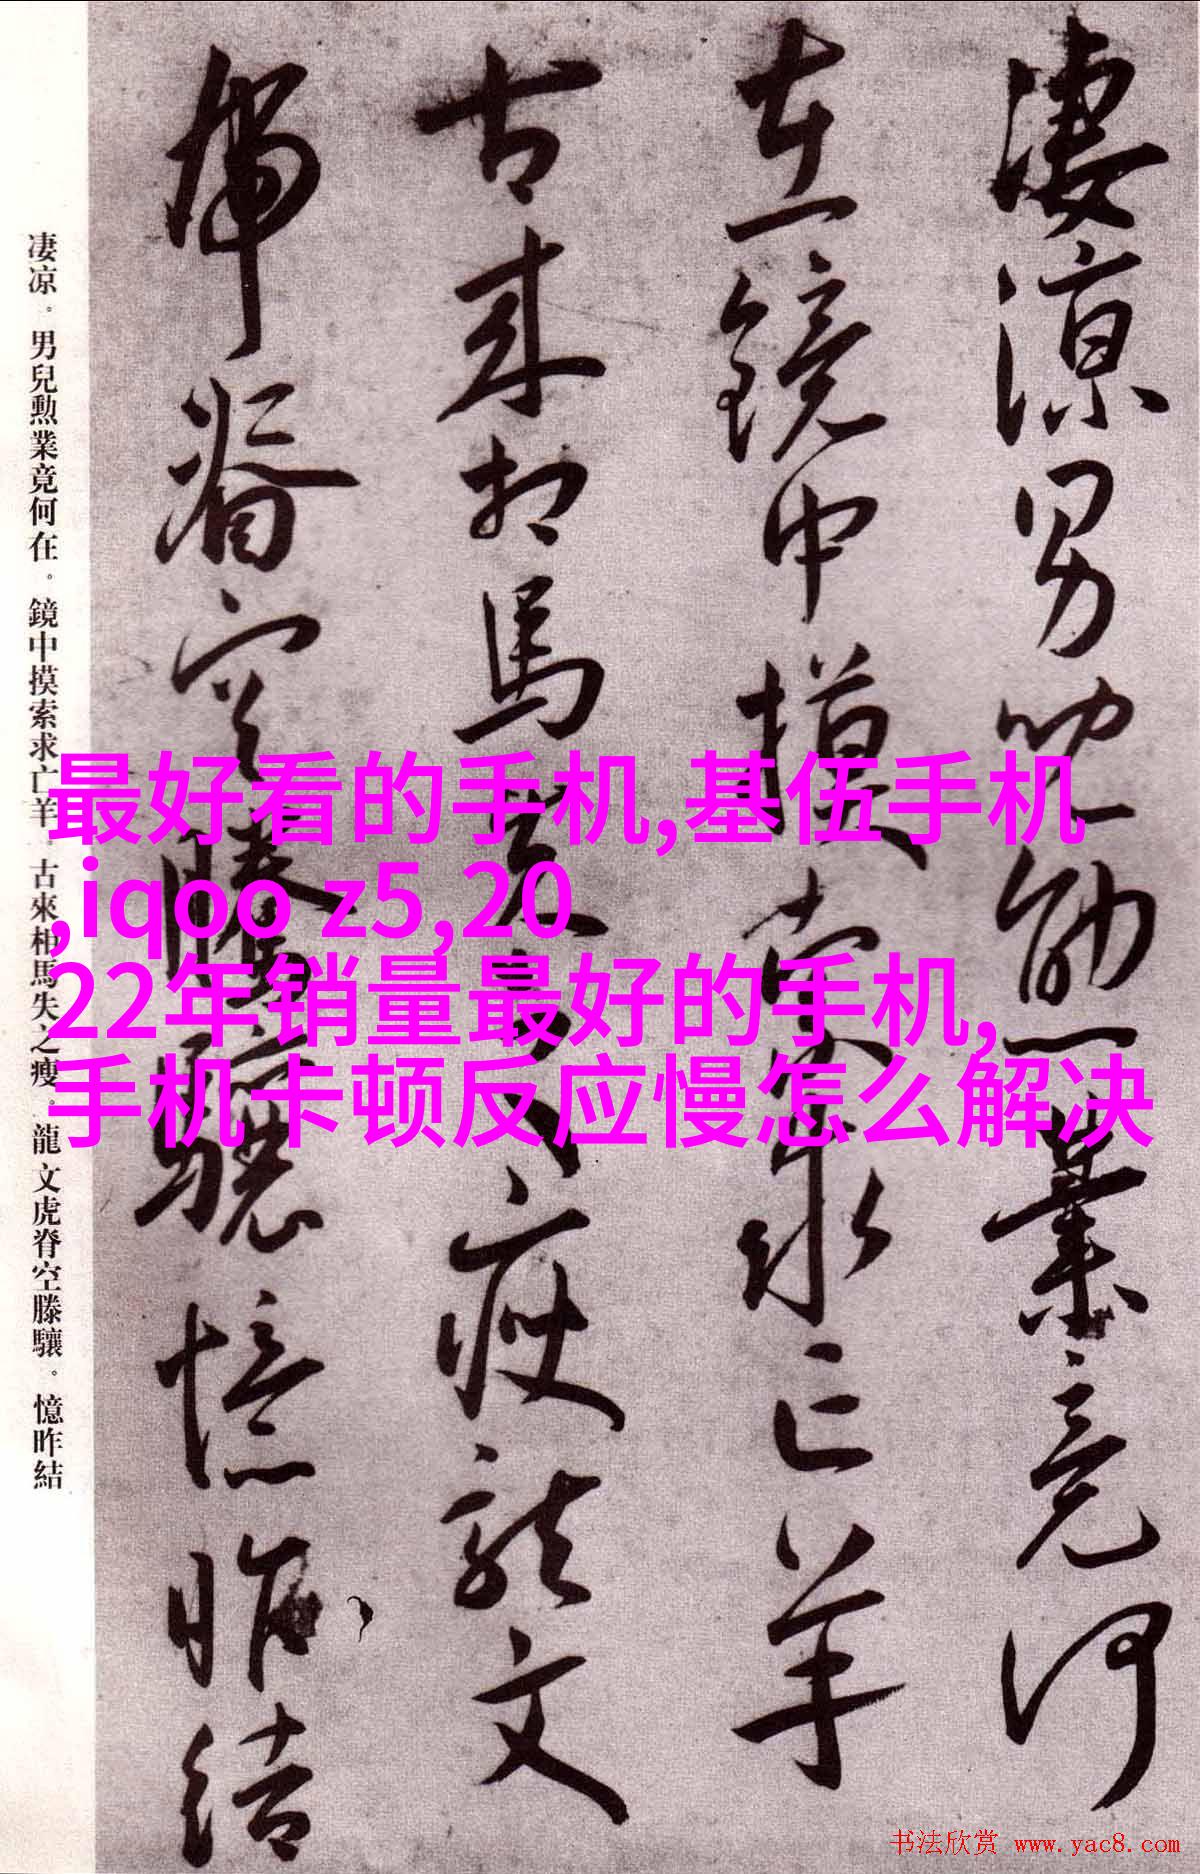 凄涼男兒勳業竟何
在鏡中摸索求亡羊
古來相馬失之瘦龍文
虎脊空騰驤憶昨結
凄凉。男兒勲業竟何在。鏡中摸索求亡羊。古來相馬失之瘦。龍文虎脊空滕驤。憶昨結
最好看的手机,基伍手机
,iqoo z5,20
22年销量最好的手机,
手机卡顿反应慢怎么解决
书法欣赏 www.yac8.com